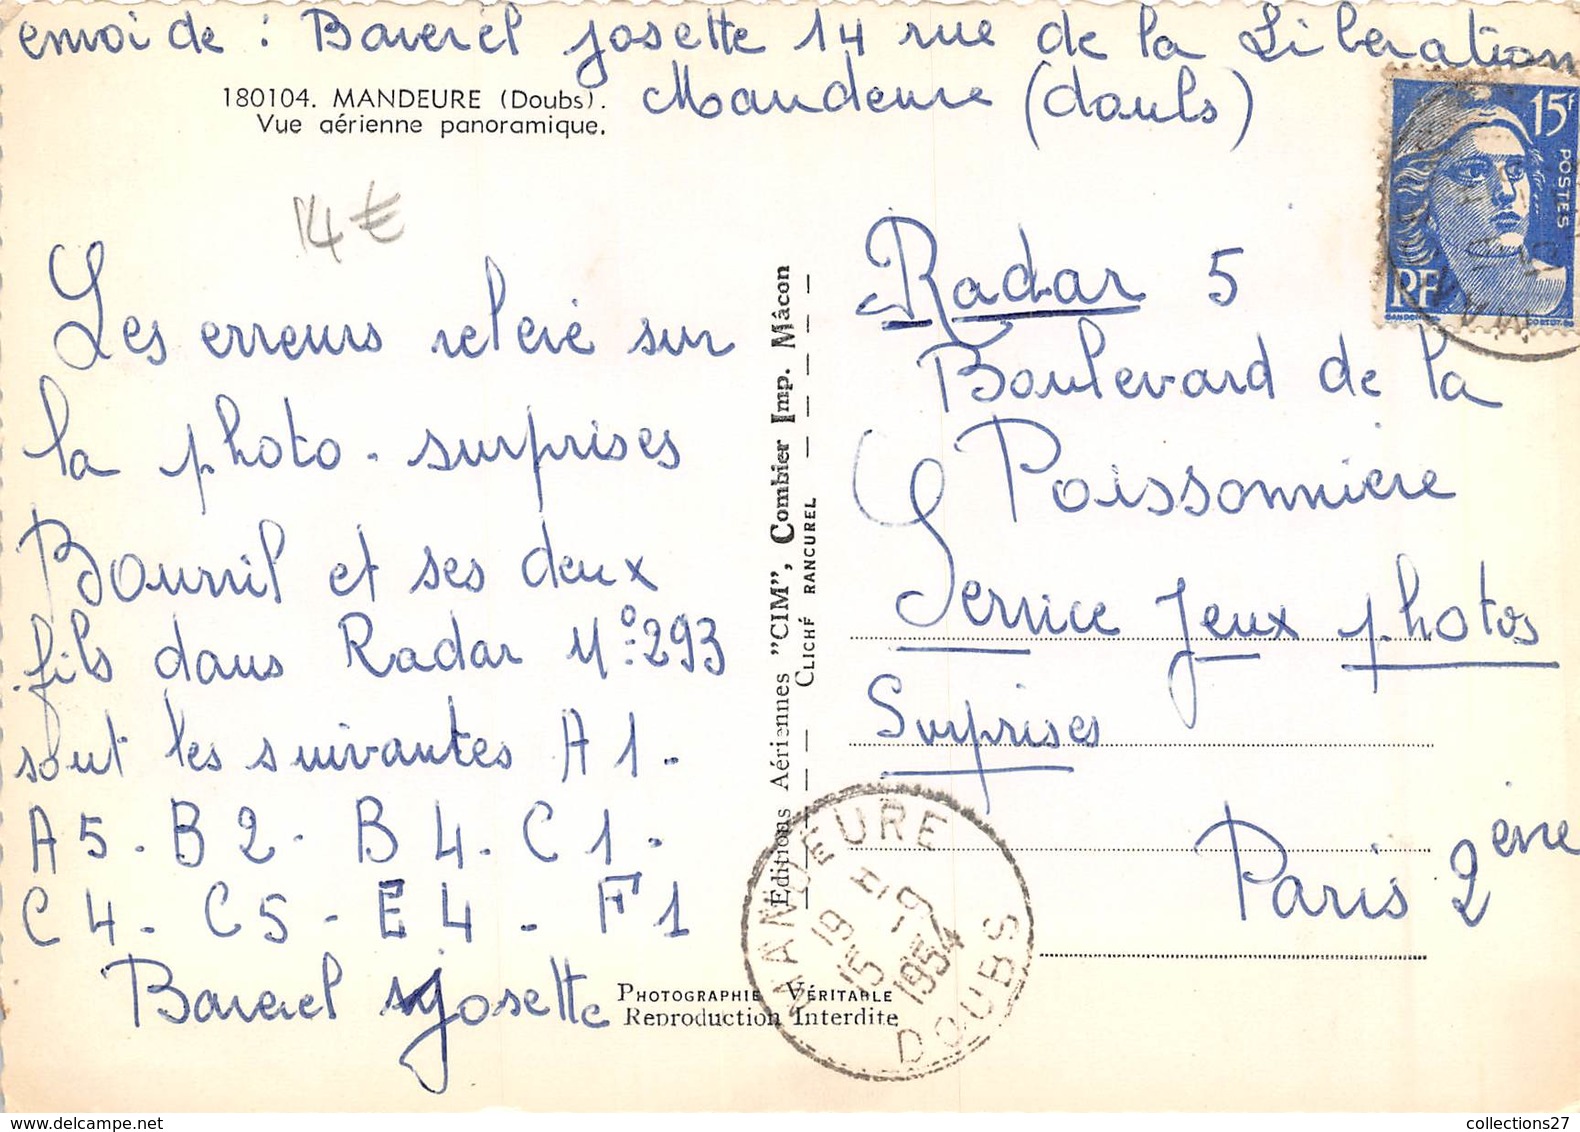 envoi de : Baverel Josette 14 rue de la Libération
Mandeure (doubs)
180104. MANDEURE (Doubs).
Vue aérienne panoramique.
14 €
Les erreurs relevé sur
la photo - surprises
Bourvil et ses deux
fils dans Radar N° 293
sont les suivantes A 1 -
A 5 - B 2 - B 4 - C 1 -
C 4 - C 5 - E 4 - F 1
Baverel Josette
Editions Aériennes "CIM", Combier Imp. Mâcon
CLICHÉ RANCUREL
PHOTOGRAPHIE VÉRITABLE
Reproduction Interdite
Radar 5
Boulevard de la
Poissonniere
Service Jeux photos
Surprises
Paris 2 eme
15F
POSTES
RF
GANDON
MANDEURE
19 H
15 - 9
1954
DOUBS
collections27